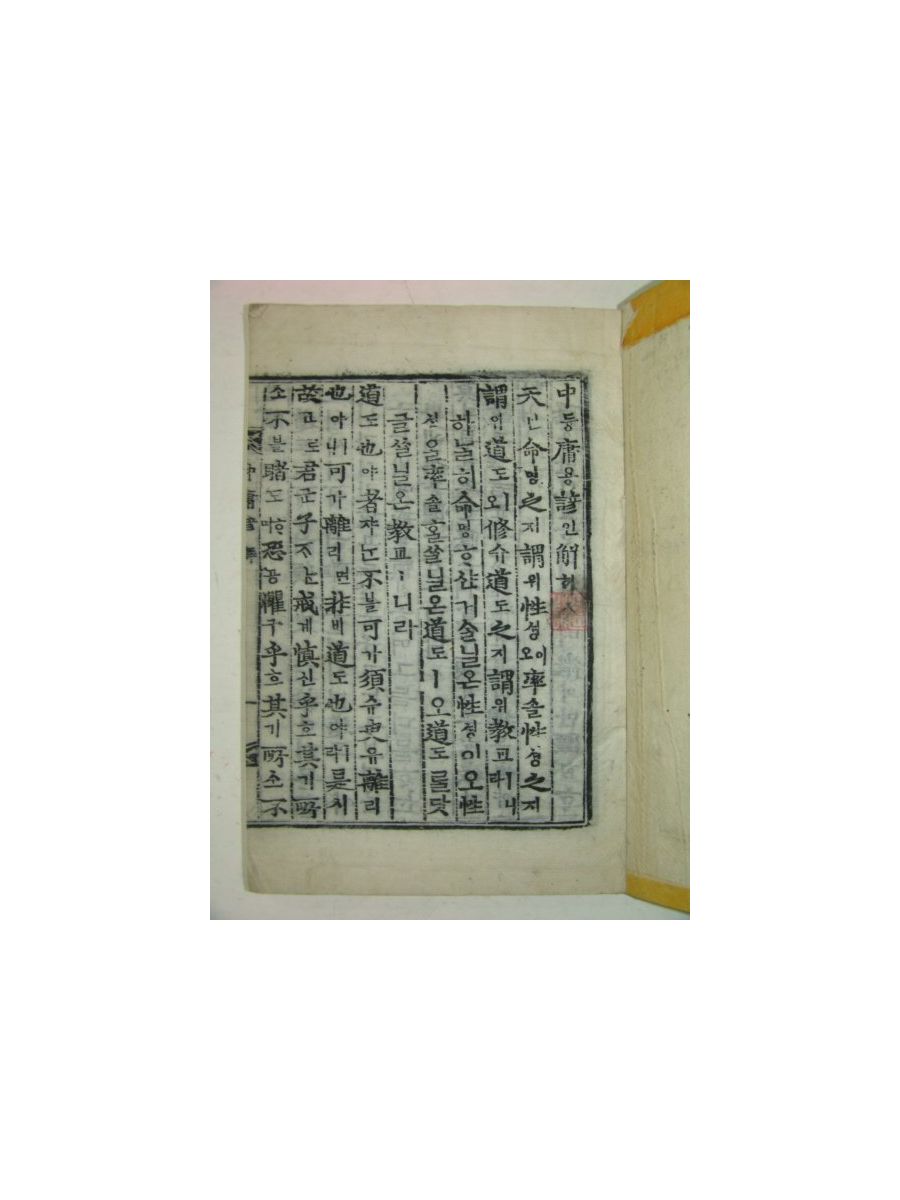 中듕庸용諺언解ᄒᆡ
天텬命명之지謂위性셩이오率솔性셩之지
謂위道도ㅣ오修슈道도之지謂위敎교ㅣ니라
하ᄂᆞᆯ히命명ᄒᆞ샨거슬닐온性셩이오性
셩을率솔홀ᄊᆞᆯ닐온道도ㅣ오道도ᄅᆞᆯ닷
글ᄊᆞᆯ닐온敎교ㅣ니라
道도也야者쟈ᄂᆞᆫ不블可가須슈臾유離리
也야ㅣ니可가離리면非비道도也야ㅣ라是시
故고로君군子ᄌᆞᄂᆞᆫ戒계愼신乎호其기所
소不블睹도ᄒᆞ며恐공懼구乎호其기所소不
中庸諺解
一